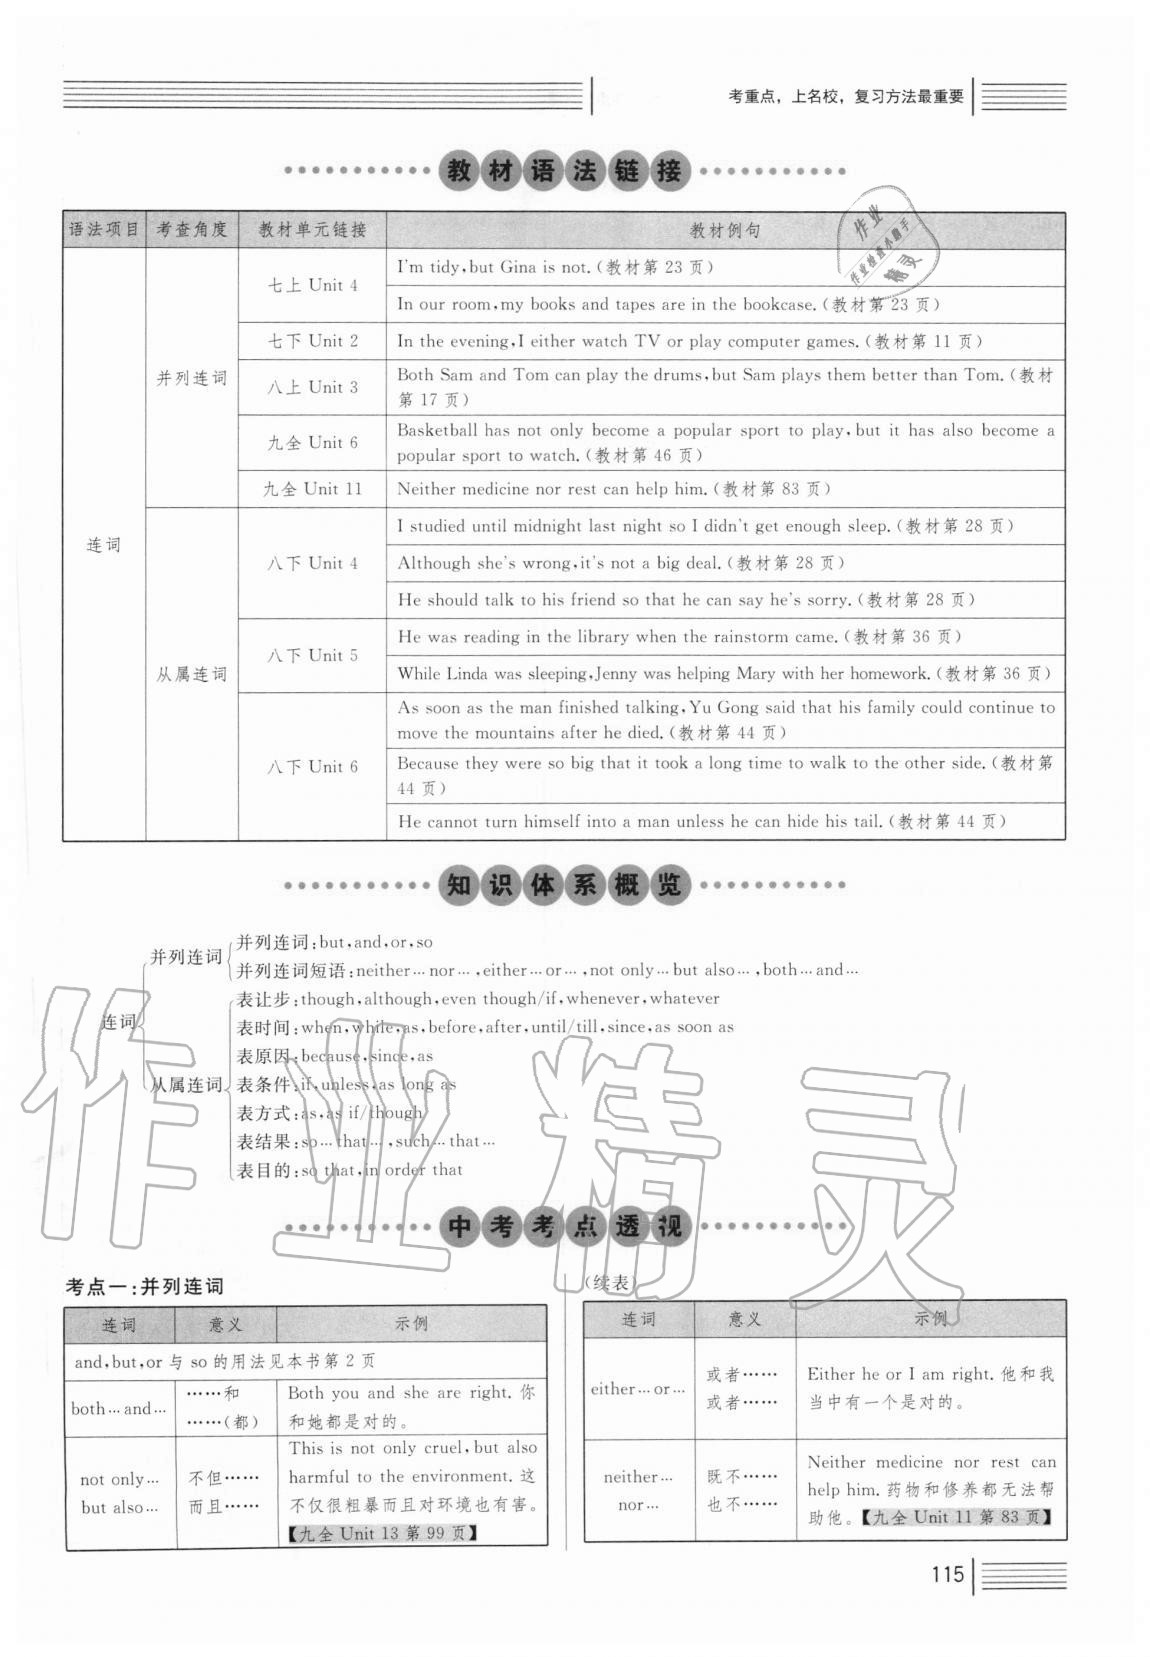 考重点，上名校，复习方法最重要
教材语法链接
语法项目 考查角度 教材单元链接 教材例句
连词
并列连词
七上 Unit 4
I'm tidy,but Gina is not.(教材第 23 页)
In our room,my books and tapes are in the bookcase.(教材第 23 页)
七下 Unit 2
In the evening,I either watch TV or play computer games.(教材第 11 页)
八上 Unit 3
Both Sam and Tom can play the drums,but Sam plays them better than Tom.(教材
第 17 页)
九全 Unit 6
Basketball has not only become a popular sport to play,but it has also become a
popular sport to watch.(教材第 46 页)
九全 Unit 11
Neither medicine nor rest can help him.(教材第 83 页)
从属连词
八下 Unit 4
I studied until midnight last night so I didn't get enough sleep.(教材第 28 页)
Although she's wrong,it's not a big deal.(教材第 28 页)
He should talk to his friend so that he can say he's sorry.(教材第 28 页)
八下 Unit 5
He was reading in the library when the rainstorm came.(教材第 36 页)
While Linda was sleeping,Jenny was helping Mary with her homework.(教材第 36 页)
八下 Unit 6
As soon as the man finished talking,Yu Gong said that his family could continue to
move the mountains after he died.(教材第 44 页)
Because they were so big that it took a long time to walk to the other side.(教材第
44 页)
He cannot turn himself into a man unless he can hide his tail.(教材第 44 页)
作业
作业检查小助手
精灵
知识体系概览
连词
并列连词
并列连词:but,and,or,so
并列连词短语:neither…nor…,either…or…,not only…but also…,both…and…
从属连词
表让步:though,although,even though/if,whenever,whatever
表时间:when,while,as,before,after,until/till,since,as soon as
表原因:because,since,as
表条件:if,unless,as long as
表方式:as,as if/though
表结果:so…that…,such…that…
表目的:so that,in order that
作业精灵
中考考点透视
考点一:并列连词
连词 意义 示例
and,but,or 与 so 的用法见本书第 2 页
both…and…
……和
……(都)
Both you and she are right. 你
和她都是对的。
not only…
but also…
不但……
而且……
This is not only cruel,but also
harmful to the environment. 这
不仅很粗暴而且对环境也有害。
【九全 Unit 13 第 99 页】
(续表)
连词 意义 示例
either…or…
或者……
或者……
Either he or I am right. 他和我
当中有一个是对的。
neither…
nor…
既不……
也不……
Neither medicine nor rest can
help him. 药物和修养都无法帮
助他。【九全 Unit 11 第 83 页】
115